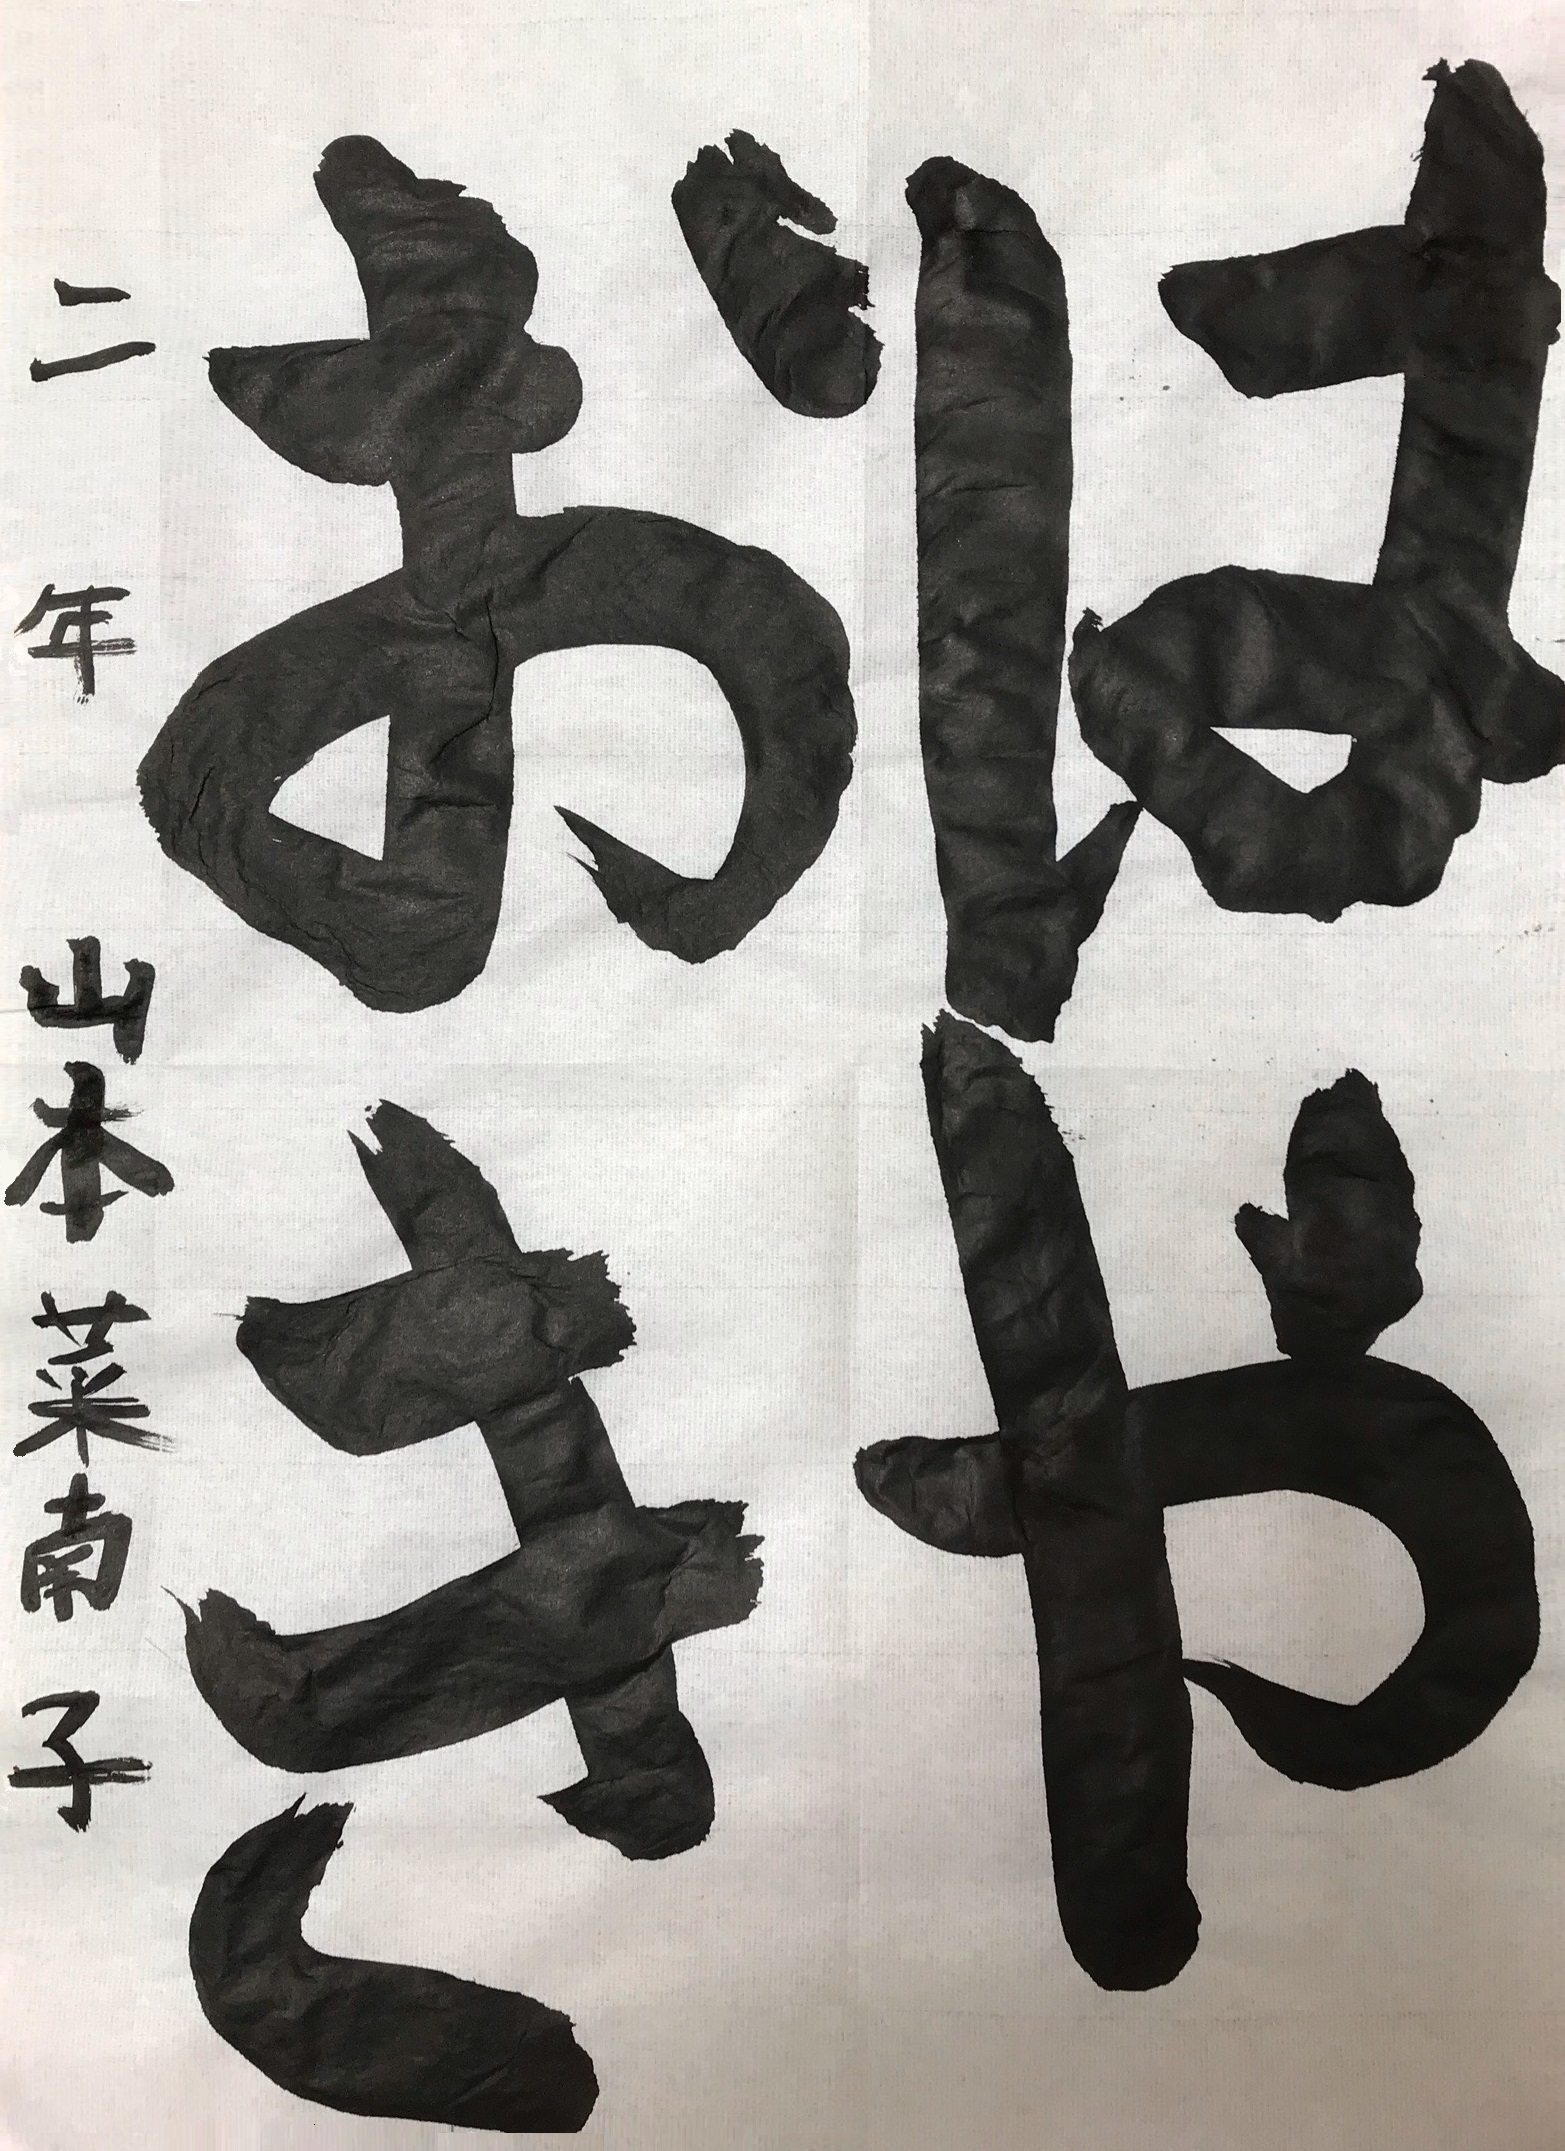 はや
おき
二年 山本菜南子